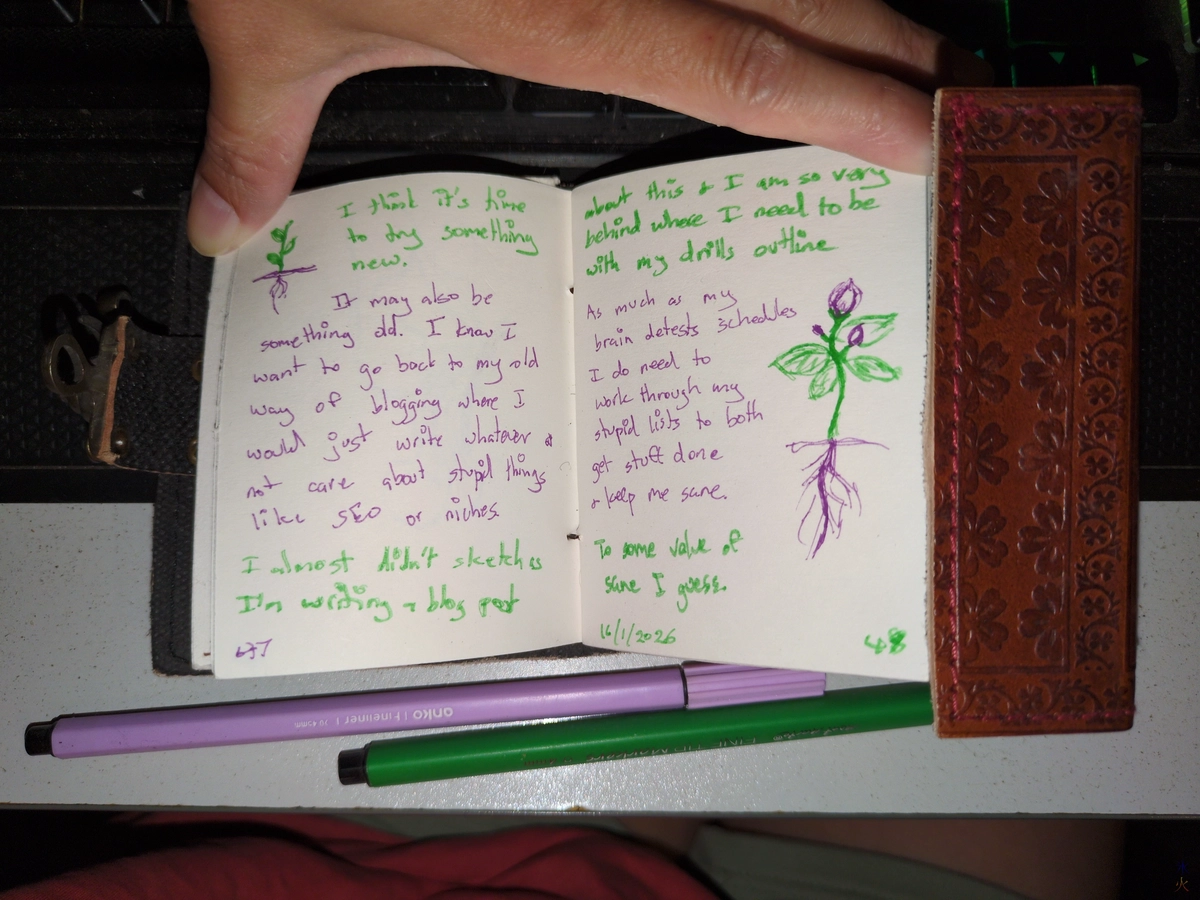 I think it's time
to try something
new.
It may also be
something old. I know I
want to go back to my old
way of blogging where I
would just write whatever &
not care about stupid things
like SEO or niches.
I almost didn't sketch as
I'm writing a blog post
47
about this & I am so very
behind where I need to be
with my drills outline
As much as my
brain detests schedules
I do need to
work through my
stupid lists to both
get stuff done
& keep me sane.
To some value of
sane I guess.
16/1/2026
48
anko | Fineliner |
火